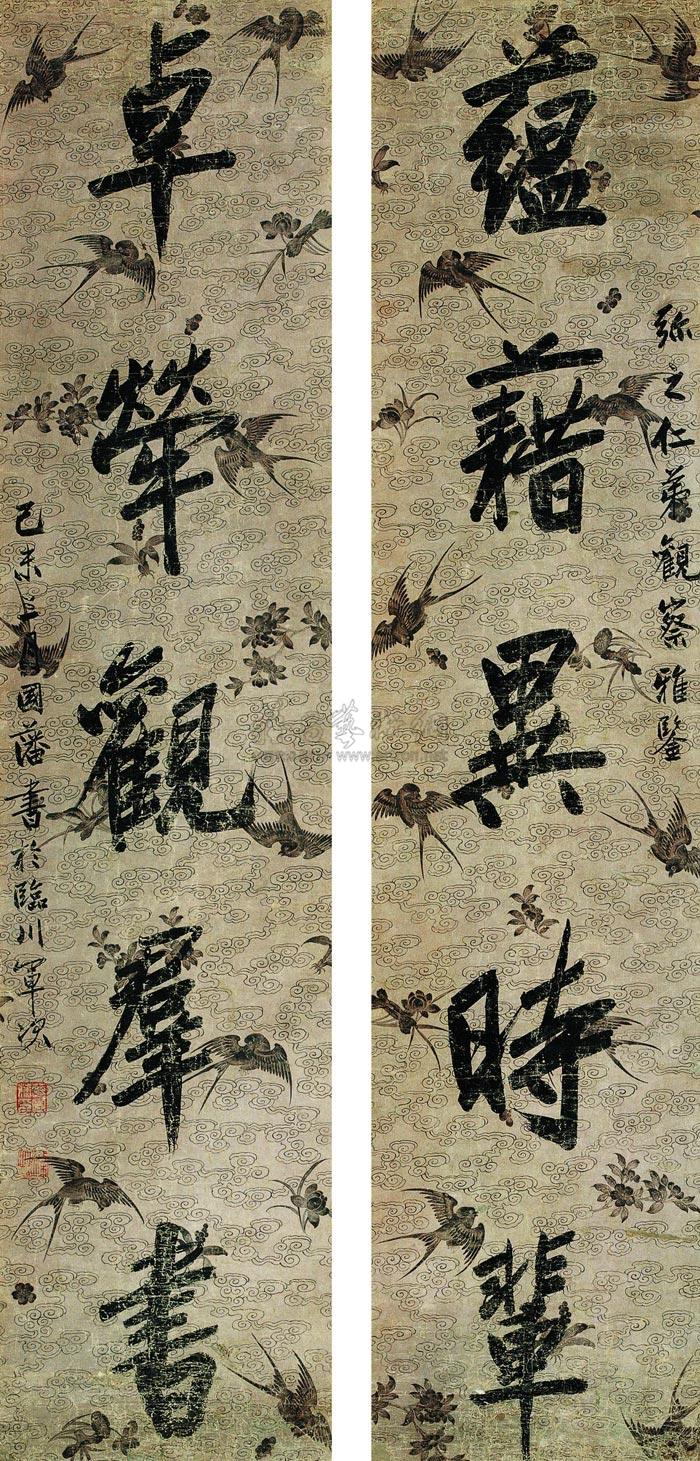 弥之仁弟觀察雅鑒
蘊藉異時輩
卓犖觀羣書
己未月国藩書於臨川軍次